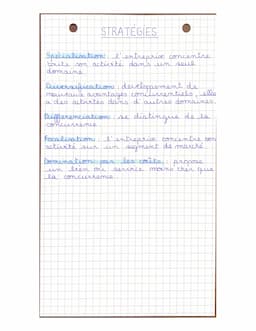 STRATÉGIES
Spécialisation : l'entreprise concentre
toute son activité dans un seul
domaine.
Diversification : développement de
nouveaux avantages concurrentiels, elle
a des activités dans d'autres domaines.
Différenciation : se distingue de la
concurrence.
Focalisation : l'entreprise concentre son
activité sur un segment de marché.
Domination par les coûts : propose
un bien ou service moins cher que
la concurrence.